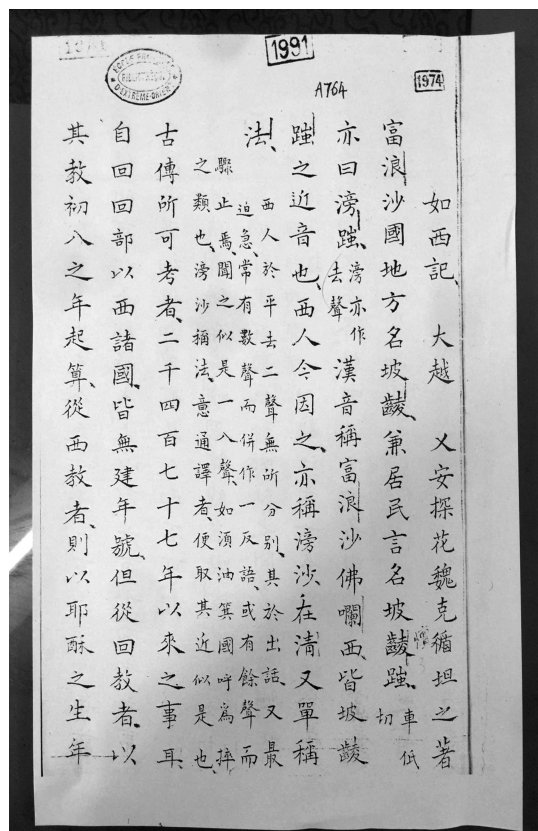 1991
A764
1974
如西記、大越　乂安探花魏克循坦之著
富浪沙國地方名坡𪘲、兼居民言名坡𪘲䟡、車低切
亦曰滂䟡、滂亦作去聲漢音稱富浪沙佛㘓西、皆坡𪘲
䟡之近音也、西人今因之、亦稱滂沙、在清又單稱
法、西人於平去二聲無所分別、其於出話、又最
迫急、常有數聲而併作一反語、或有餘聲而
驟止焉、聞之似是一入聲、如湏油箕國呼爲㨲
之類也、滂沙稱法、意通譯者、便取其近似是也、
古傳所可考者、二千四百七十七年以來之事耳
自回回部以西諸國、皆無建年號、但從回教者、以
其教初入之年起算、從西教者、則以耶酥之生年